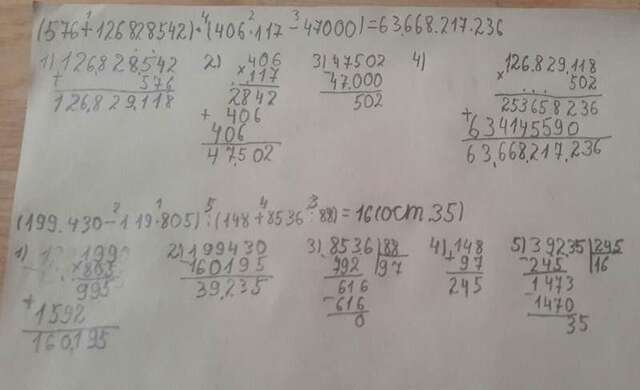 (576+126828542)·(406·117-47000)=63.668.217.236
1) 126.828.542
+ 576
126.829.118
2) 406
× 117
2842
+ 406
406
47.502
3) 47502
- 47.000
502
4)
126.829.118
× 502
253658236
+ 634145590
63.668.217.236
(199.430-119·805):(148+8536:88)=16(ост.35)
1) 199
×805
995
+1592
160.195
2) 199430
-160195
39.235
3) 8536|88
792|97
616
-616
0
4) 148
+97
245
5) 39235|245
-245|16
1473
-1470
35